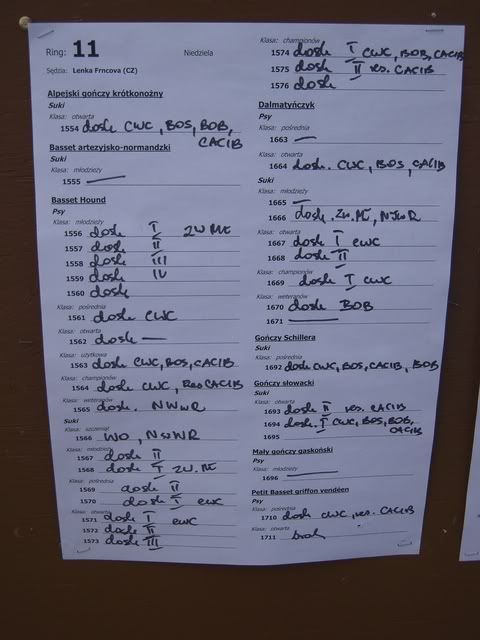 Ring: 11 Niedziela
Sędzia: Lenka Frncova (CZ)
Alpejski gończy krótkonożny
Suki
Klasa: otwarta
1554 dosk CWC, BOS, BOB,
CACIB
Basset artezyjsko-normandzki
Suki
Klasa: młodzieży
1555 —
Basset Hound
Psy
Klasa: młodzieży
1556 dosk I ZW.MŁ
1557 dosk II
1558 dosk III
1559 dosk IV
1560 dosk
Klasa: pośrednia
1561 dosk CWC
Klasa: otwarta
1562 dosk —
Klasa: użytkowa
1563 dosk CWC, BOS, CACIB
Klasa: championów
1564 dosk CWC, Res CACIB
Klasa: weteranów
1565 dosk. NWwR
Suki
Klasa: szczeniąt
1566 WO, NSwWR
Klasa: młodzieży
1567 dosk II
1568 dosk I ZW.MŁ
Klasa: pośrednia
1569 dosk II
1570 dosk I CWC
Klasa: otwarta
1571 dosk I CWC
1572 dosk II
1573 dosk III
Klasa: championów
1574 dosk I CWC, BOB, CACIB
1575 dosk II res. CACIB
1576 dosk
Dalmatyńczyk
Psy
Klasa: pośrednia
1663 —
Klasa: otwarta
1664 dosk. CWC, BOS, CACIB
Suki
Klasa: młodzieży
1665 —
1666 dosk. Zw.MŁ, NJwR
Klasa: otwarta
1667 dosk I CWC
1668 dosk II
Klasa: championów
1669 dosk I CWC
Klasa: weteranów
1670 dosk BOB
1671 —
Gończy Schillera
Suki
Klasa: pośrednia
1692 dosk CWC, BOS, CACIB, BOB
Gończy słowacki
Suki
Klasa: otwarta
1693 dosk II res. CACIB
1694 dosk. I CWC, BOS, BOB,
1695 CACIB
Mały gończy gaskoński
Psy
Klasa: młodzieży
1696 —
Petit Basset griffon vendéen
Psy
Klasa: pośrednia
1710 dosk CWC, res. CACIB
Klasa: otwarta
1711 brak